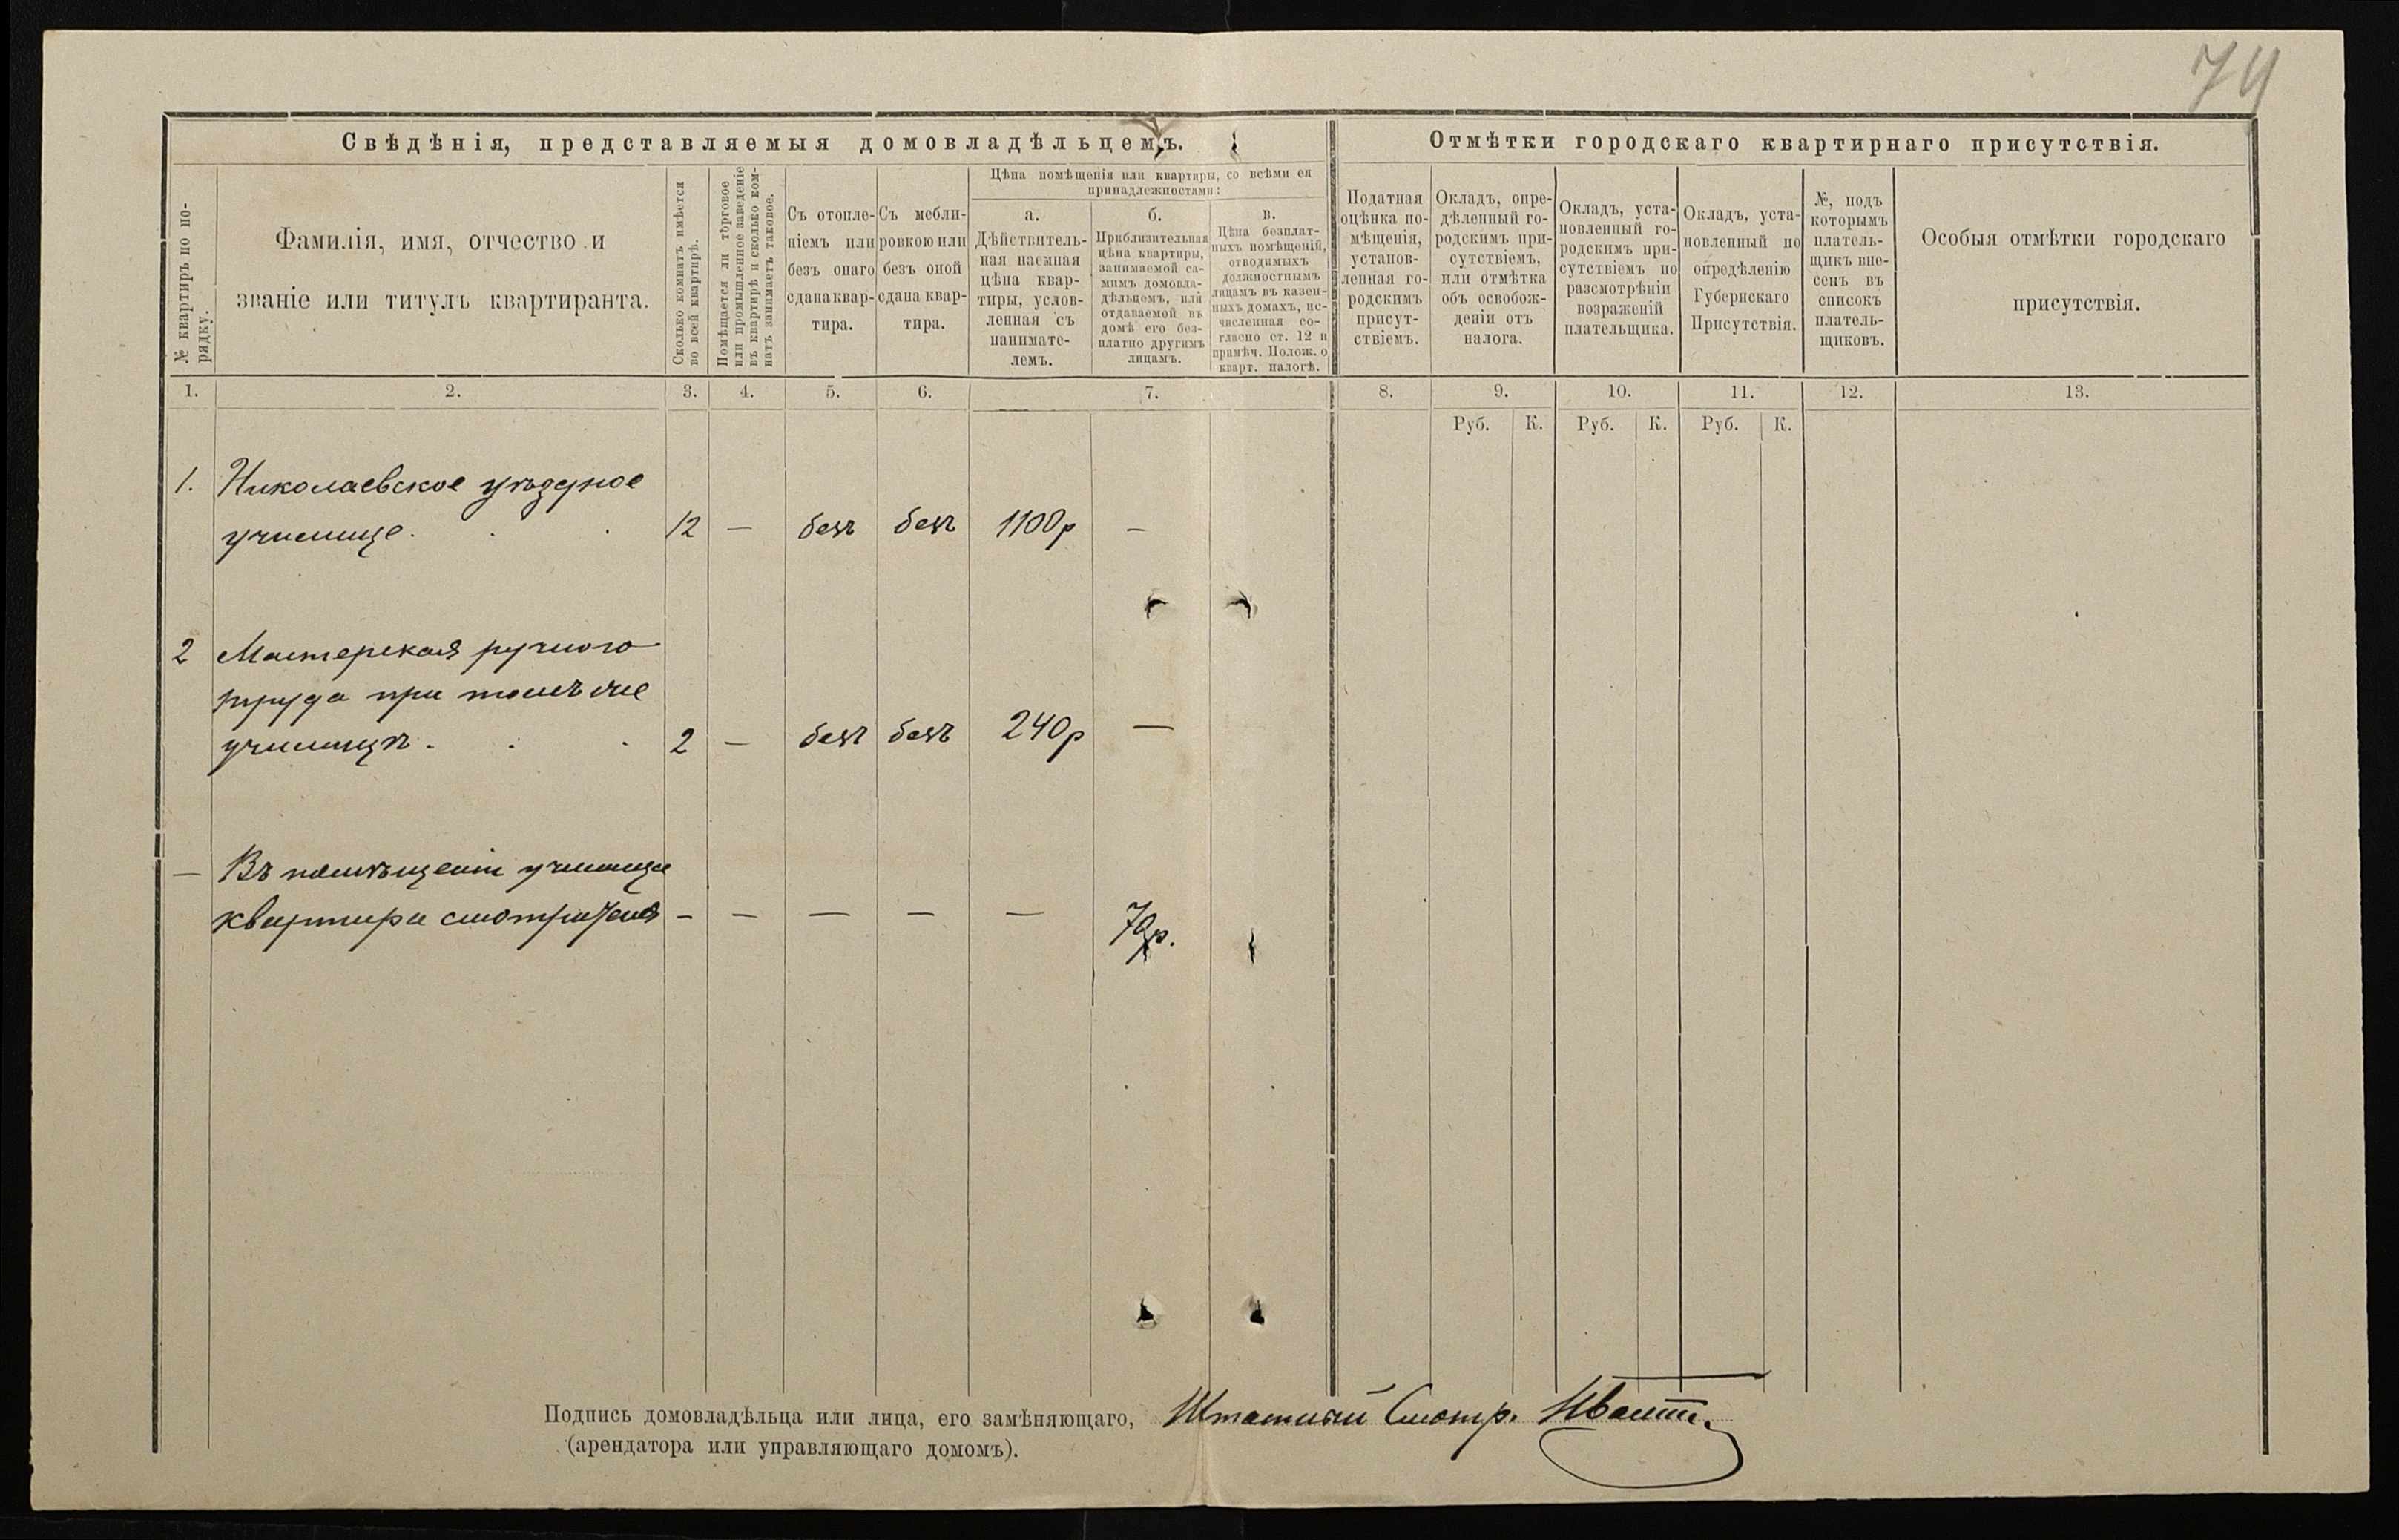 74
Свѣдѣнія, представляемыя домовладѣльцемъ.
Отмѣтки городскаго квартирнаго присутствія.
№ квартиръ по по-
рядку.
Фамилія, имя, отчество и
званіе или титулъ квартиранта.
Сколько комнатъ имѣется
во всей квартирѣ.
Помѣщается ли торговое
или промышленное заведеніе
въ квартирѣ и сколько ком-
натъ занимаетъ таковое.
Съ отопле-
ніемъ или
безъ онаго
сдана квар-
тира.
Съ мебли-
ровкою или
безъ оной
сдана квар-
тира.
Цѣна помѣщенія или квартиры, со всѣми ея
принадлежностями:
а.
Дѣйствитель-
ная наемная
цѣна квар-
тиры, услов-
ленная съ
нанимате-
лемъ.
б.
Приблизительная
цѣна квартиры,
занимаемой са-
мимъ домовла-
дѣльцемъ, или
отдаваемой въ
домѣ его без-
платно другимъ
лицамъ.
в.
Цѣна безплат-
ныхъ помѣщеній,
отводимыхъ
должностнымъ
лицамъ въ казен-
ныхъ домахъ, ис-
численная со-
гласно ст. 12 и
примѣч. Полож. о
кварт. налогѣ.
Податная
оцѣнка по-
мѣщенія,
установ-
ленная го-
родскимъ
присут-
ствіемъ.
Окладъ, опре-
дѣленный го-
родскимъ при-
сутствіемъ,
или отмѣтка
объ освобож-
деніи отъ
налога.
Окладъ, уста-
новленный го-
родскимъ при-
сутствіемъ по
разсмотрѣніи
возраженій
плательщика.
Окладъ, уста-
новленный по
опредѣленію
Губернскаго
Присутствія.
№, подъ
которымъ
платель-
щикъ вне-
сенъ въ
списокъ
платель-
щиковъ.
Особыя отмѣтки городскаго
присутствія.
1. 2. 3. 4. 5. 6. 7. 8. 9. 10. 11. 12. 13.
Руб. К. Руб. К. Руб. К.
1. Николаевское уѣздное
училище. 12 — безъ безъ 1100р —
2 Мастерская ручного
труда при томъ же
училищѣ. 2 — безъ безъ 240р —
— Въ помѣщеніи училища
квартира смотрителя — — — — — 70р.
Подпись домовладѣльца или лица, его замѣняющаго, Штатный Смотр.
(арендатора или управляющаго домомъ).